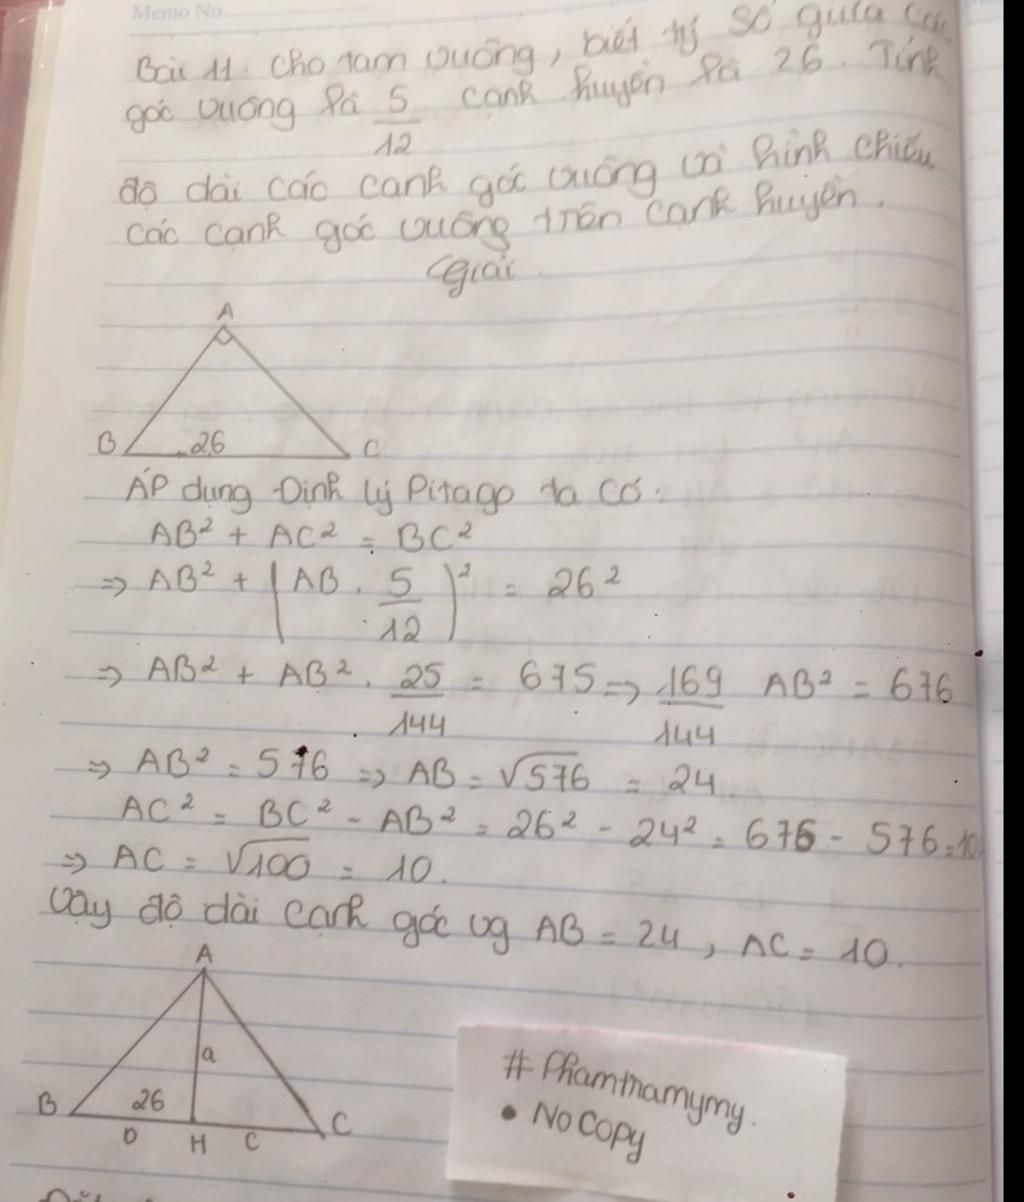 Memo No.
Bài 11. Cho tam vuông, biết tỷ số giữa các
góc vuông là 5/12 cạnh huyền là 26. Tính
độ dài các cạnh góc vuông và hình chiếu
các cạnh góc vuông trên cạnh huyền.
Giải
A
B 26 C
Áp dụng Định lý Pitago ta có:
AB² + AC² = BC²
=> AB² + (AB . 5/12)² = 26²
=> AB² + AB² . 25/144 = 675 => 169/144 AB² = 676
=> AB² = 576 => AB = √576 = 24
AC² = BC² - AB² = 26² - 24² = 676 - 576 = 10
=> AC = √100 = 10.
Vậy độ dài cạnh góc vg AB = 24, AC = 10.
A
a
B 26 C
D H C
# Phamthamymy.
• No Copy